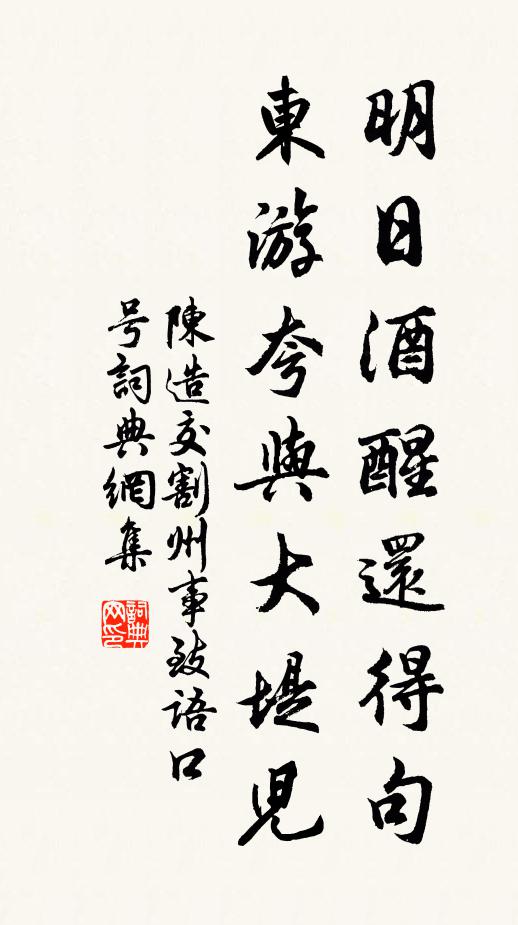 明日酒醒還得句
東游夸與大堤兒
陳造交割州事致語口
号詞典網集
詞典网印